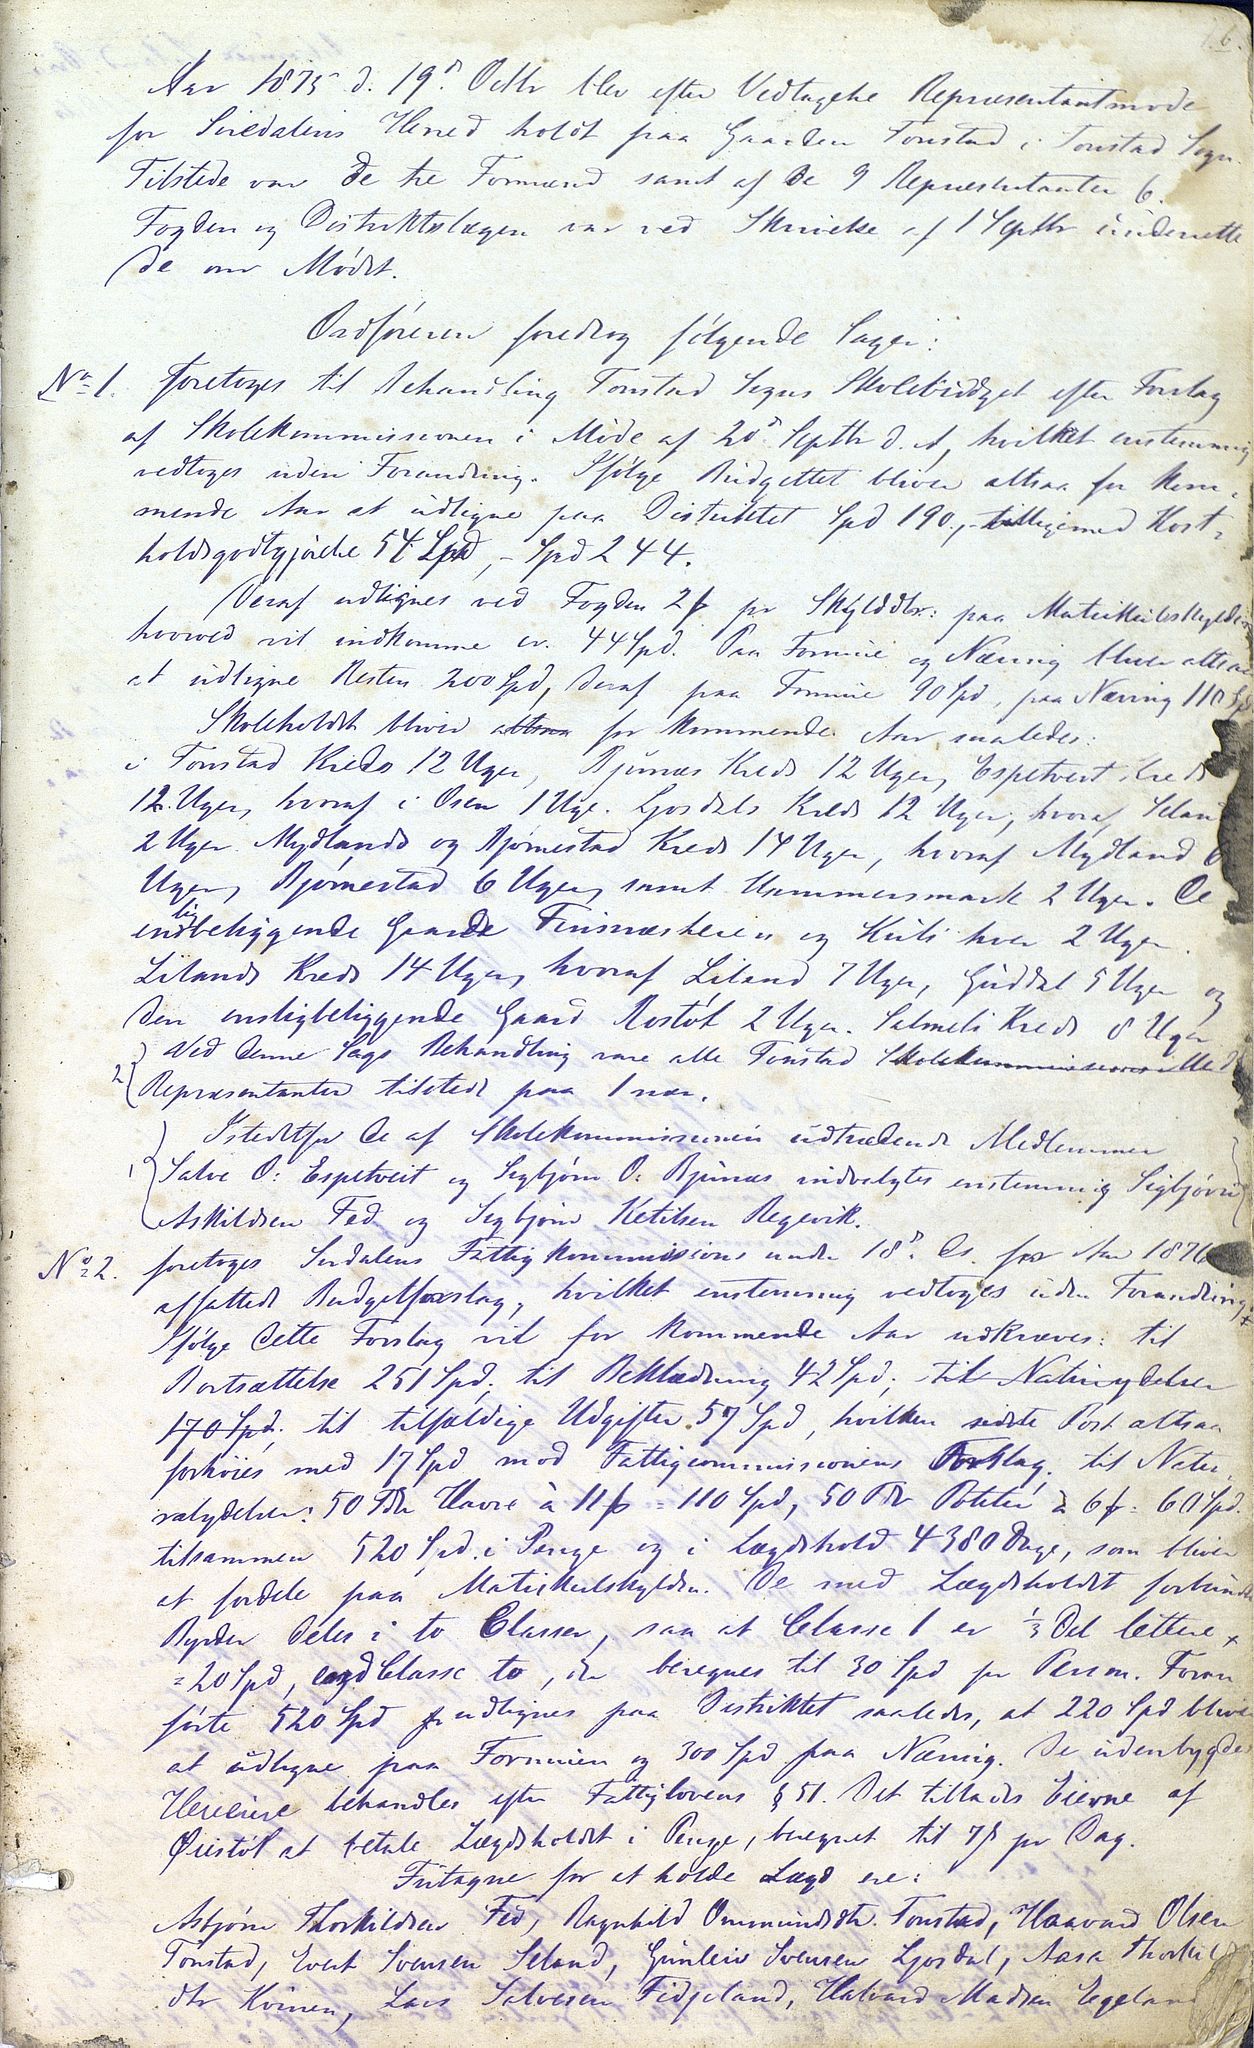 Aar 1875 d. 19d Octbr blev efter Vedtagelse Repræsentantmøde
for Siredalens Herred holdt paa Gaarden Tonstad i Tonstad Sogn.
Tilstede var de tre Formænd samt af de 9 Repræsentanter 6.
Fogden og Distriktslægen var ved Skrivelse af 1 Septbr underrette
de om Mødet.
Ordføreren foredrog følgende Sager:
No 1. foretoges til Behandling Tonstad Sogns Skolebudget efter Forslag
af Skolekommissionen i Møde af 20d Septbr d. A, hvilket enstemmig
vedtoges uden Forandring. Ifølge Budgettet bliver altsaa for kom-
mende Aar at udligne paa Distriktet Spd 190, tilligemed Kost-
holdsgodtgjørelse 54 Spd, - Spd 244.
Deraf udlignes ved Fogden 2 f pr Skylddlr: paa Matrikulskylden
hvorved vil indkomme cr. 44 Spd. Paa Formue og Næring bliver altsaa
at udligne Resten 200 Spd, deraf paa Formue 90 Spd, paa Næring 110 Spd
Skoleholdet bliver altsaa for kommende Aar saaledes:
i Tonstad Kreds 12 Uger, Bjunæs Kreds 12 Uger, Espetveit Kreds
12 Uger, hvoraf i Osen 1 Uge. Ljosdals Kreds 12 Uger, hvoraf
2 Uger. Mydlands og Bjørnestad Kreds 14 Uger, hvoraf Mydland 6
Uger, Bjørnestad 6 Uger, samt Hammersmark 2 Uger. De
lig
ensbeliggende Gaarde Finsnæsheien og Kvili hver 2 Uger.
Lilands Kreds 14 Uger, hvoraf Liland 7 Uger, Guddal 5 Uger og
den ensligbeliggende Gaard Rostøl 2 Uger. Salmeli Kreds 8 Uger
Ved denne Sags Behandling vare alle Tonstad Skolekommissions Med
2 Repræsentanter tilstede paa 1 nær.
Istedetfor de af Skolekommissionen udtrædende Medlemmer
1 Salve O: Espetveit og Sigbjørn O: Bjunæs indvalgtes enstemmig Sigbjørn
Askildsen Fed og Sigbjørn Ketilsen Regevik.
No 2. foretoges Siredalens Fattigkommissions under 18d ds. for Aar 1876
affattede Budgetforslag, hvilket enstemmig vedtoges uden Forandring
Ifølge dette Forslag vil for kommende Aar udkræves: til
Bortsættelse 251 Spd; til Beklædning 42 Spd; til Naturydelser
170 Spd; til tilfældige Udgifter 57 Spd, hvilken sidste Post altsaa
forhøies med 17 Spd mod Fattigcommissionens Forslag. til Natu-
ralydelser: 50 Tdr Havre à 11 f = 110 Spd, 50 Tdr Poteter à 6 f = 60 Spd.
tilsammen 520 Spd. i Penge og i Lægdshold 4380 Dage, som bliver
at fordele paa Matrikulskylden. De med Lægdsholdet forbundne
Byrder deles i to Classer, saa at Classe 1 er 1/3 Del lettere
= 20 Spd, end Classe to, der beregnes til 30 Spd pr Person. Foran
førte 520 Spd udlignes paa Distriktet saaledes, at 220 Spd bliver
at udligne paa Formuen og 300 Spd paa Næring. De udenbygdes
Heieiere behandles efter Fattiglovens § 51. Det tillades Eierne af
Øiestøl at betale Lægdsholdet i Penge, beregnet til 7 s pr Dag.
Fritagne for at holde Lægd ere:
Asbjørn Thorkildsen Fed, Ragnhild Ommundsdtr. Tonstad, Haavard Olsen
Tonstad, Evert Svensen Seland, Gunleiv Svensen Ljosdal, Aasa Thorkilds
dtr Kvinen, Lars Salvesen Fidjeland, Halvard Madsen Egeland